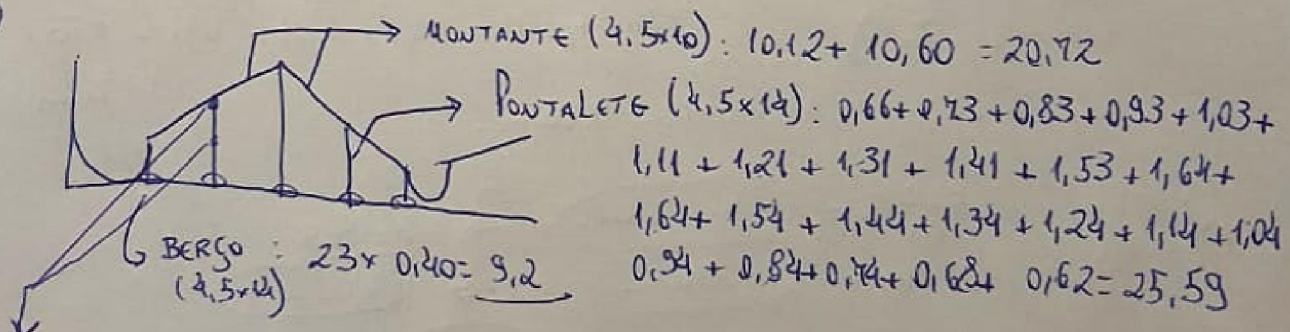 MONTANTE (4,5x10): 10,12 + 10,60 = 20,72
PONTALETE (4,5x14): 0,66 + 0,73 + 0,83 + 0,93 + 1,03 +
1,11 + 1,21 + 1,31 + 1,41 + 1,53 + 1,64 +
1,64 + 1,54 + 1,44 + 1,34 + 1,24 + 1,14 + 1,04
0,94 + 0,84 + 0,74 + 0,68 + 0,62 = 25,59
BERÇO : 23x 0,40 = 9,2
(4,5x14)